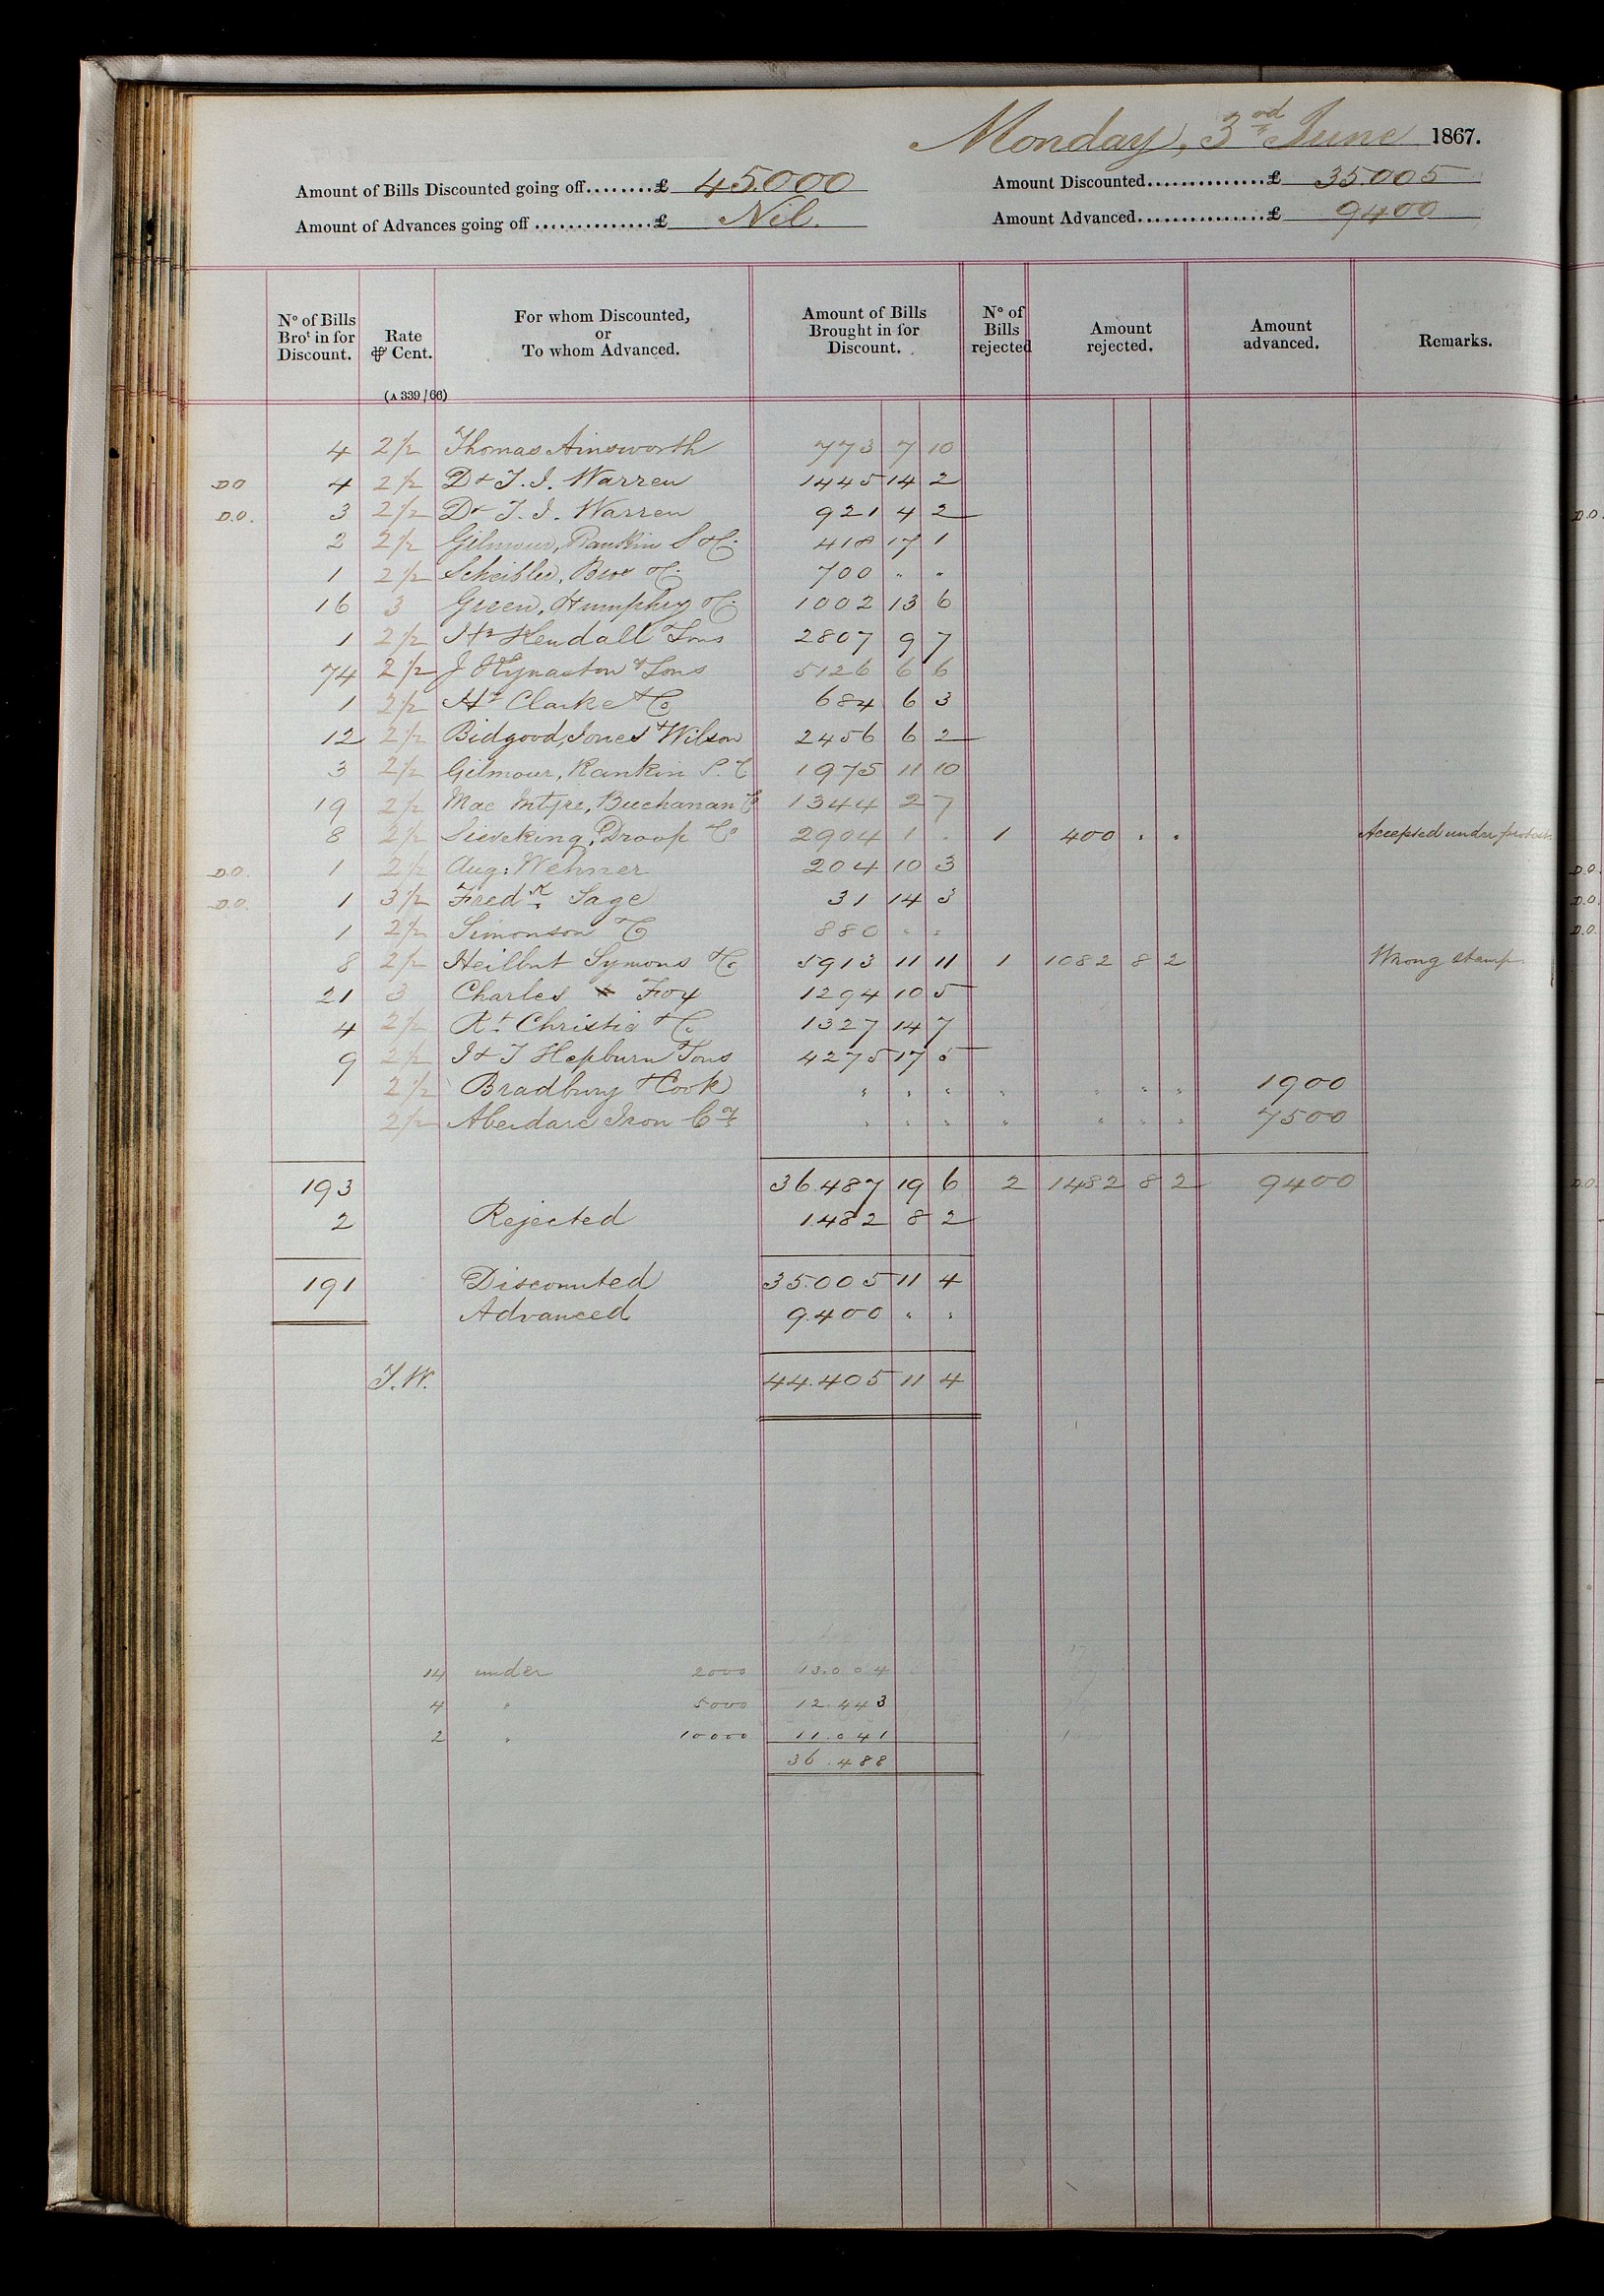 Monday, 3rd June 1867.
Amount of Bills Discounted going off........£ 45.000 Amount Discounted..............£ 35.005
Amount of Advances going off..............£ Nil. Amount Advanced...............£ 9400
No of Bills Brot in for Discount. Rate ⅌ Cent. For whom Discounted, or To whom Advanced. Amount of Bills Brought in for Discount. No of Bills rejected Amount rejected. Amount advanced. Remarks.
(A 339/66)
4 2½ Thomas Ainsworth 773 7 10
D.O 4 2½ D & T. I. Warren 1445 14 2
D.O. 3 2½ D & T. I. Warren 921 4 2 D.O.
2 2½ Gilmour, Rankin S & Co. 418 17 1
1 2½ Scheibler, Bros & Co. 700 " "
16 3 Green, Humphry & Co. 1002 13 6
1 2½ Hy Kendall & Sons 2807 9 7
74 2½ J Kynaston & Sons 5126 6 6
1 2½ Hy Clarke & Co 684 6 3
12 2½ Bidgood, Jones & Wilson 2456 6 2
3 2½ Gilmour, Rankin S. & C 1975 11 10
19 2½ Mac Intyre, Buchanan & Co 1344 2 7
8 2½ Sieveking, Droop & Co 2904 1 . 1 400 . . Accepted under protest
D.O. 1 2½ Aug: Wehner 204 10 3 D.O.
D.O. 1 3½ Fredk. Sage 31 14 3 D.O.
1 2½ Simonson & Co 880 " " D.O.
8 2½ Heilbut Symons & Co 5913 11 11 1 1082 8 2 Wrong stamp.
21 3 Charles Fox 1294 10 5
4 2½ Rt. Christie & Co 1327 14 7
9 2½ J & T Hepburn & Sons 4275 17 5
2½ Bradbury & Cook " " " " " " " 1900
2½ Aberdare Iron Cy " " " " " " " 7500
193 36.487 19 6 2 1482 8 2 9400 D.O.
2 Rejected 1.482 8 2
191 Discounted 35.005 11 4
Advanced 9.400 " "
T.W. 44.405 11 4
14 under 2000 13.004
4 " 5000 12.443
2 " 10000 11.041
36.488